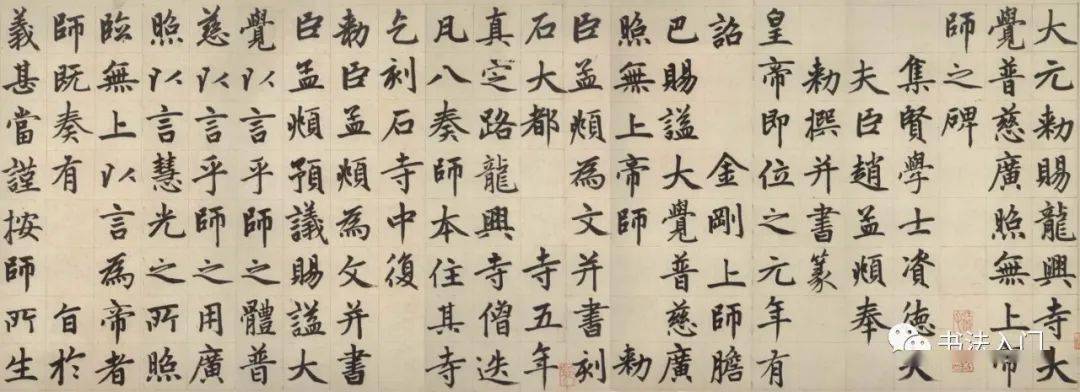 大元勅賜龍興寺大
覺普慈廣照無上帝
師之碑
集賢學士資德大
夫臣趙孟頫奉
勅撰并書篆
皇帝即位之元年有
詔 金剛上師膽
巴賜謚大覺普慈廣
照無上帝師 勅
臣孟頫為文并書刻
石大都 寺五年
真定路龍興寺僧迭
凡八奏師本住其寺
乞刻石寺中復
勅臣孟頫為文并書
臣孟頫預議賜謚大
覺以言乎師之體普
慈以言乎師之用廣
照以言慧光之所照
臨無上以言為帝者
師既奏有 旨於
義甚當謹按師所生
书法入门